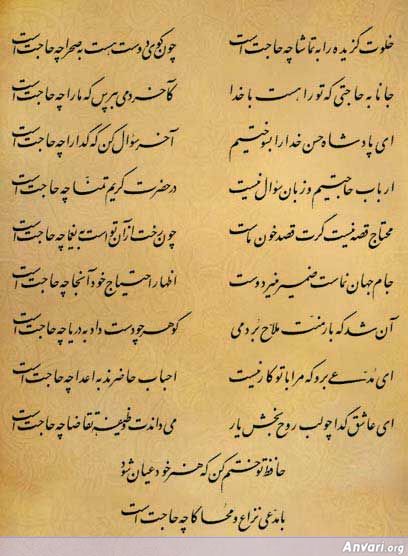 خلوت گزیده را به تماشا چه حاجت است چون کوی دوست هست به صحرا چه حاجت است
جانا به حاجتی که تو را هست با خدا کآخر دمی بپرس که ما را چه حاجت است
ای پادشاه حسن خدا را بسوختیم آخر سؤال کن که گدا را چه حاجت است
ارباب حاجتیم و زبان سؤال نیست در حضرت کریم تمنّا چه حاجت است
محتاج قصه نیست گرت قصد خون ماست چون رخت از آن توست به یغما چه حاجت است
جام جهان نماست ضمیر منیر دوست اظهار احتیاج خود آنجا چه حاجت است
آن شد که بار منت ملاح بردمی گوهر چو دست داد به دریا چه حاجت است
ای مدّعی برو که مرا با تو کار نیست احباب حاضرند به اعدا چه حاجت است
ای عاشق گدا چو لب روح بخش یار می داندت وظیفه تقاضا چه حاجت است
حافظ تو ختم کن که هنر خود عیان شود
با مدّعی نزاع و محاکا چه حاجت است
Anvari.org